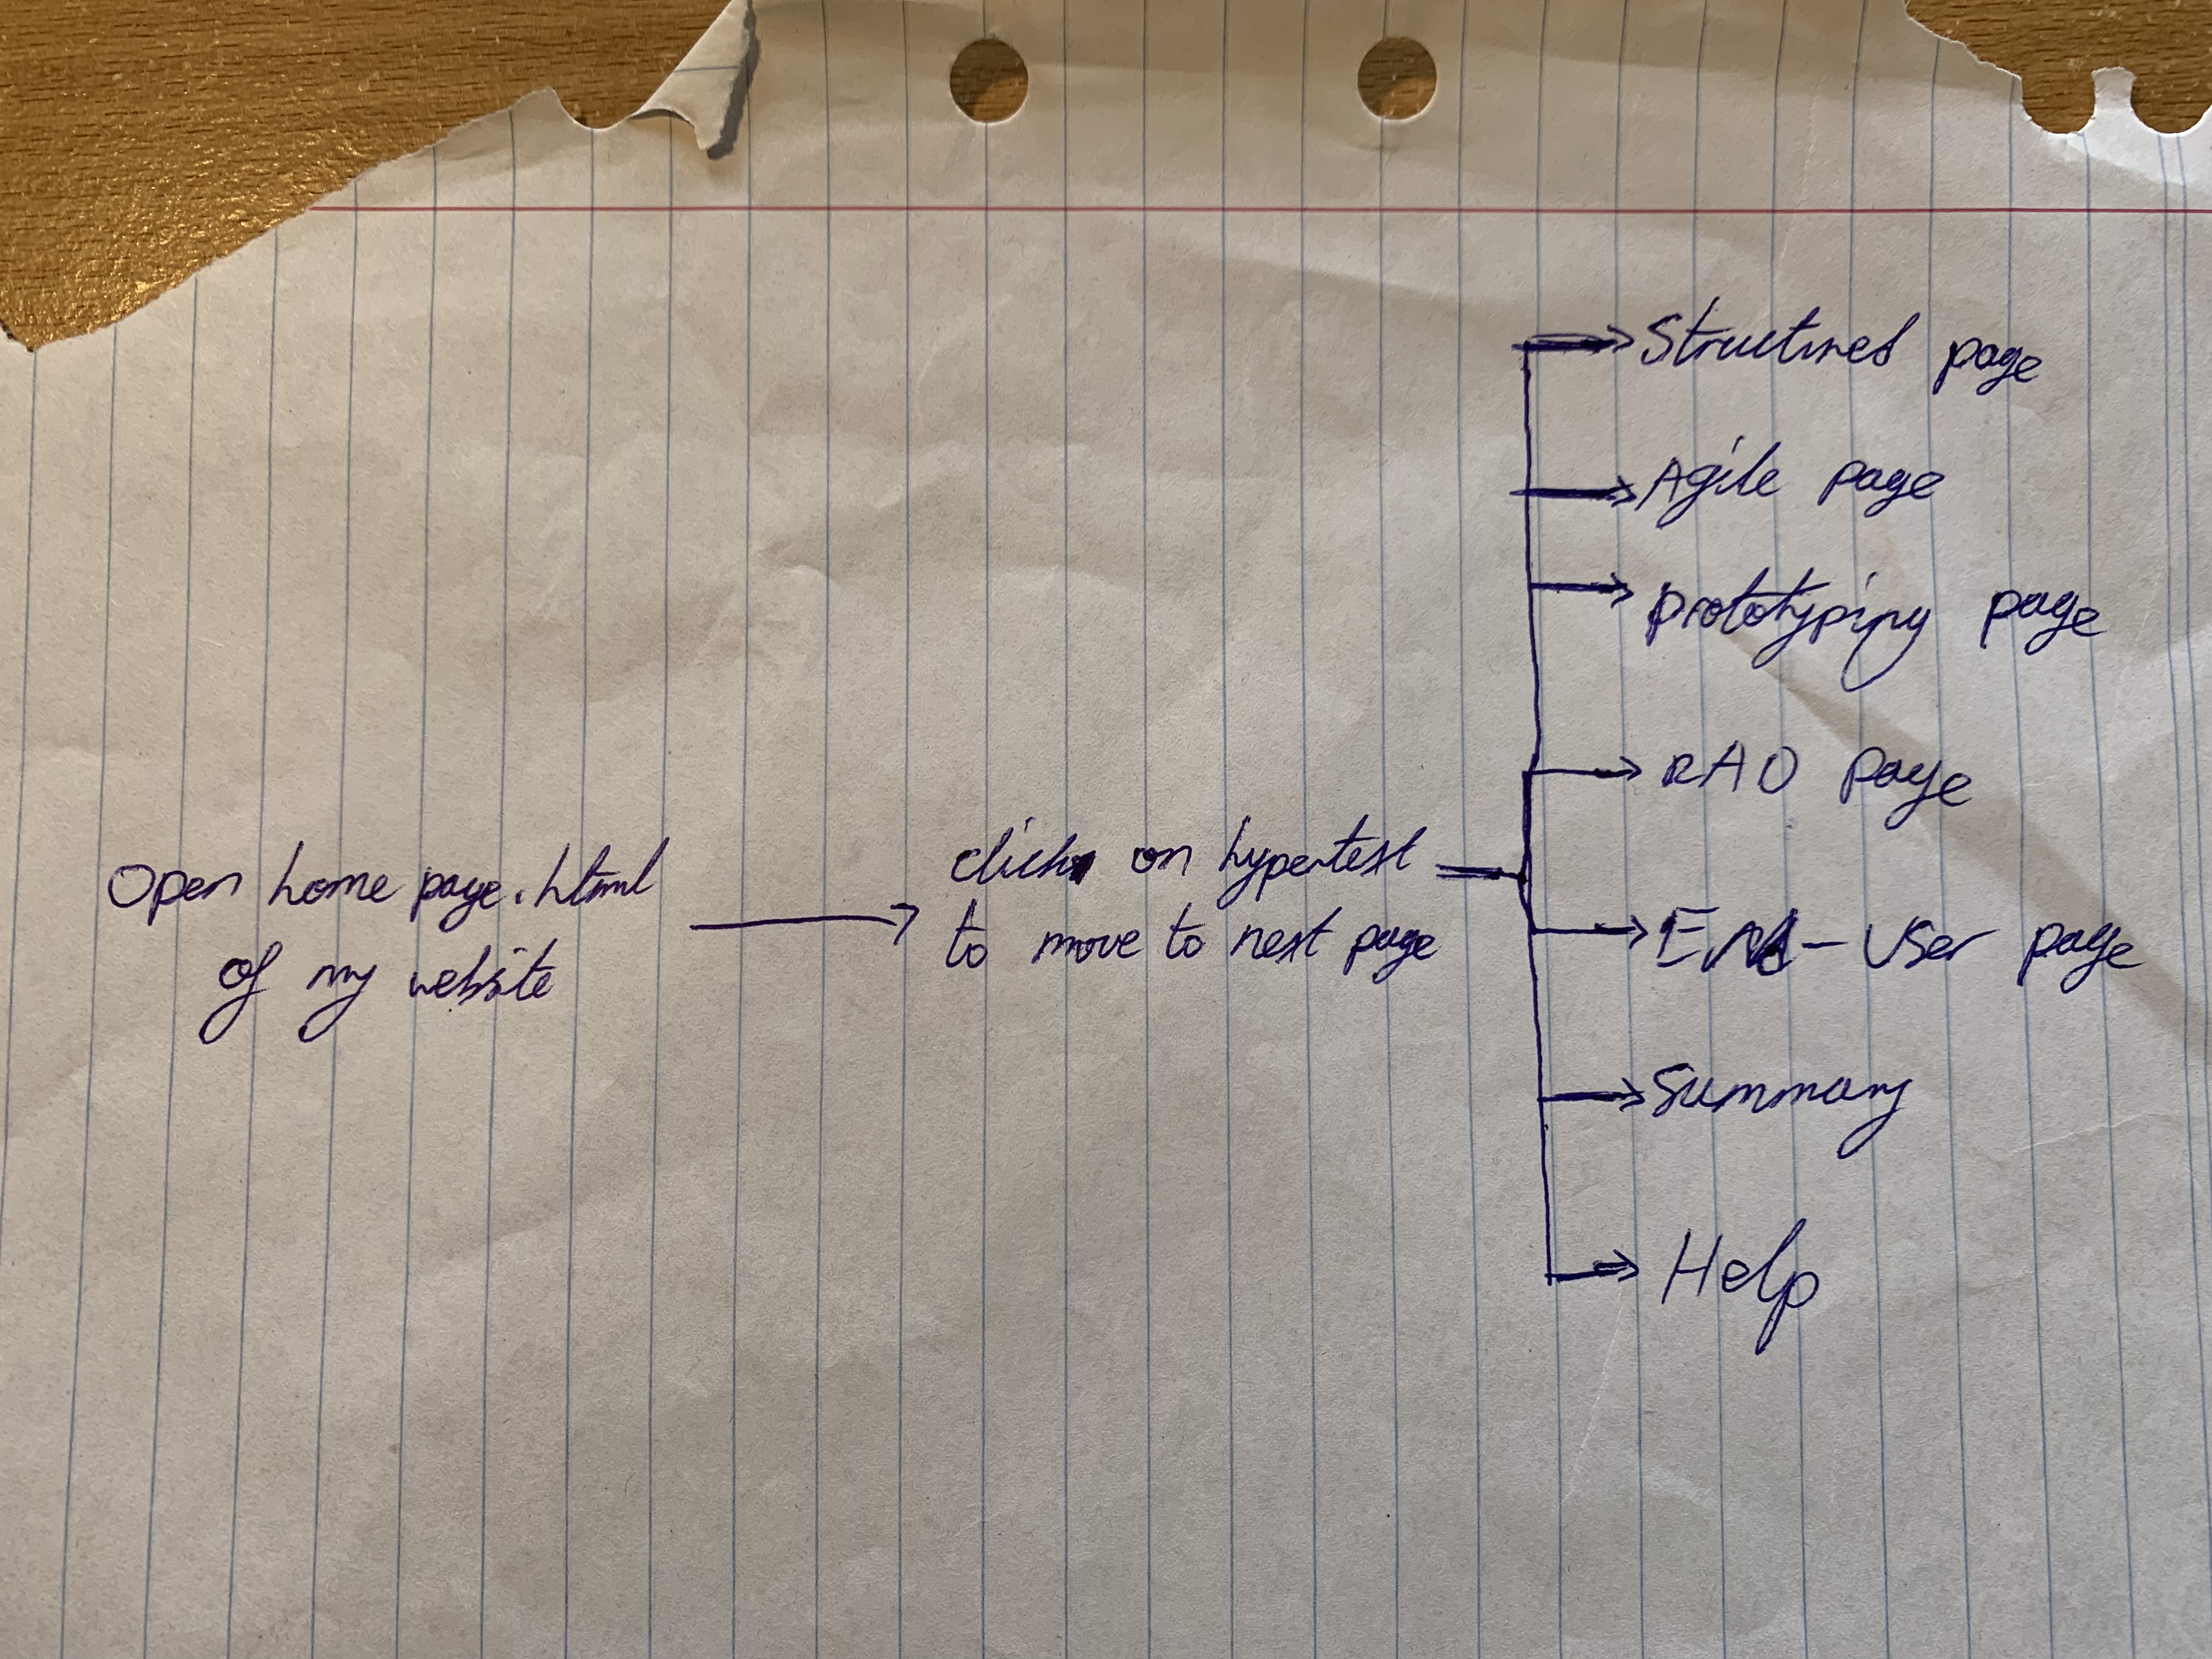 Open home page.html
of my website
click on hypertext
to move to next page
Structured page
Agile page
prototyping page
RAD page
End-User page
Summary
Help